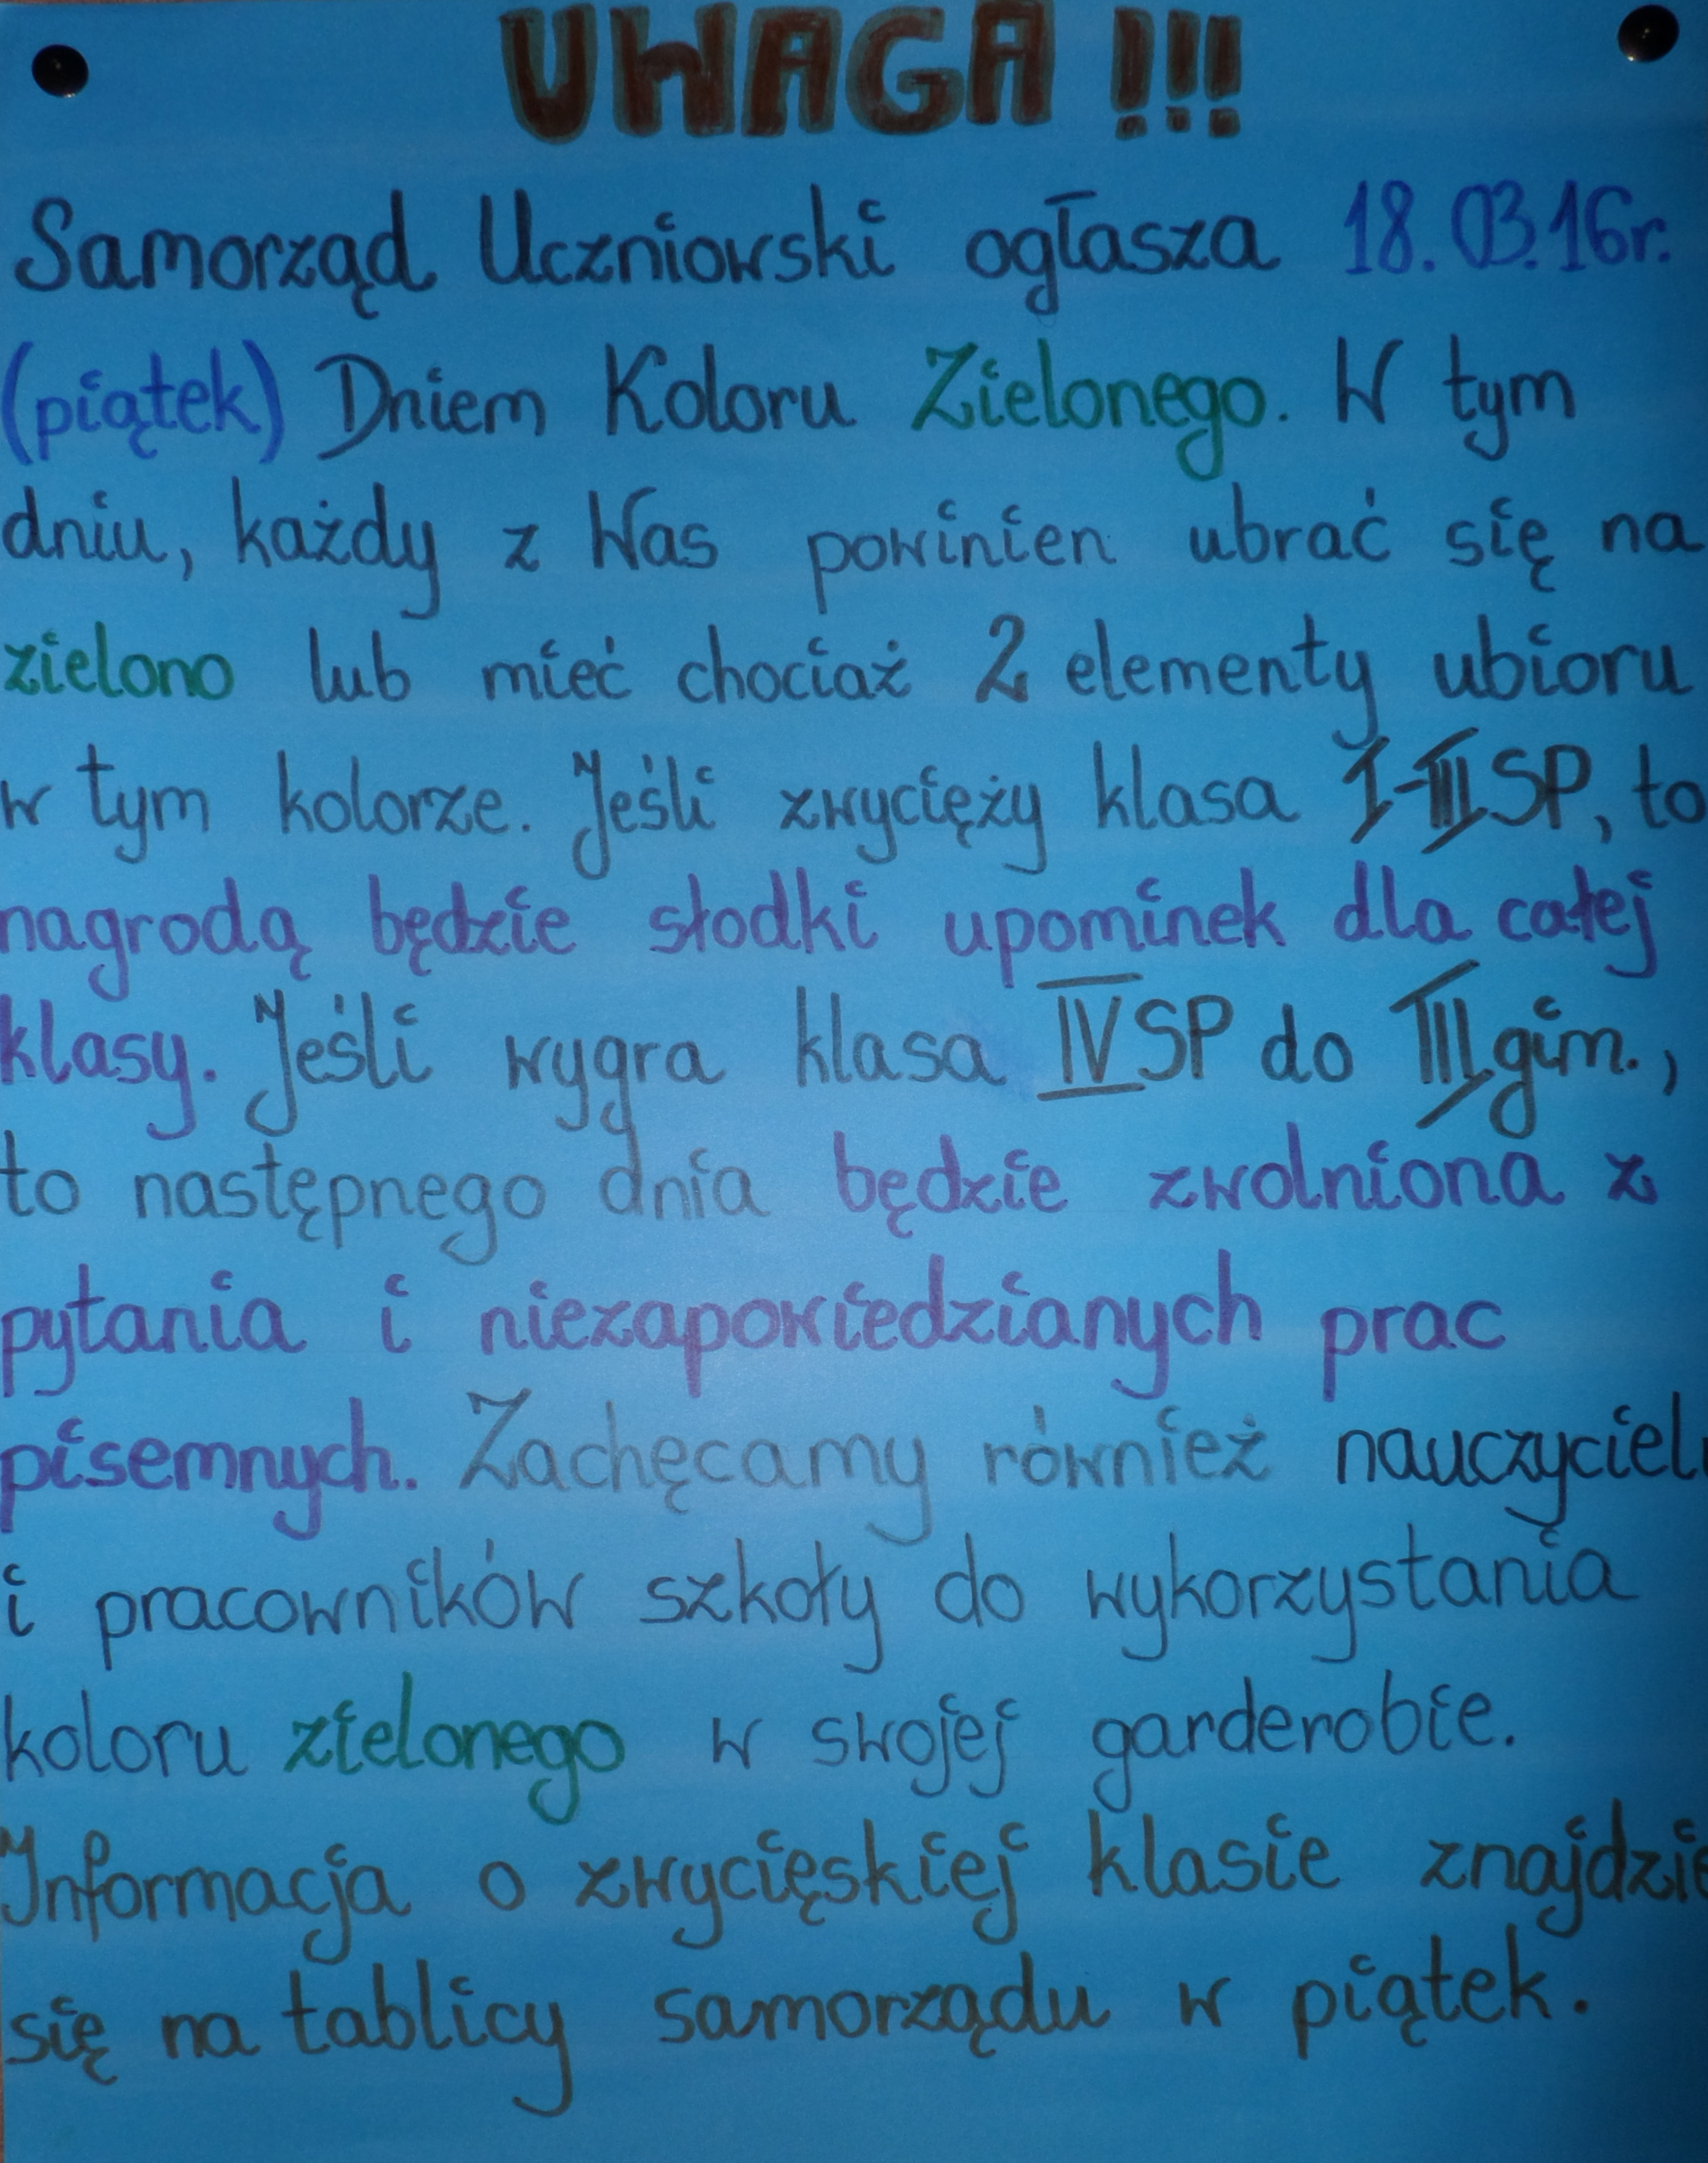 UWAGA !!!
Samorząd Uczniowski ogłasza 18.03.16r.
(piątek) Dniem Koloru Zielonego. W tym
dniu, każdy z Was powinien ubrać się na
zielono lub mieć chociaż 2 elementy ubioru
w tym kolorze. Jeśli zwycięży klasa I-III SP, to
nagrodą będzie słodki upominek dla całej
klasy. Jeśli wygra klasa IV SP do III gim.,
to następnego dnia będzie zwolniona z
pytania i niezapowiedzianych prac
pisemnych. Zachęcamy również nauczycieli
i pracowników szkoły do wykorzystania
koloru zielonego w swojej garderobie.
Informacja o zwycięskiej klasie znajdzie
się na tablicy samorządu w piątek.